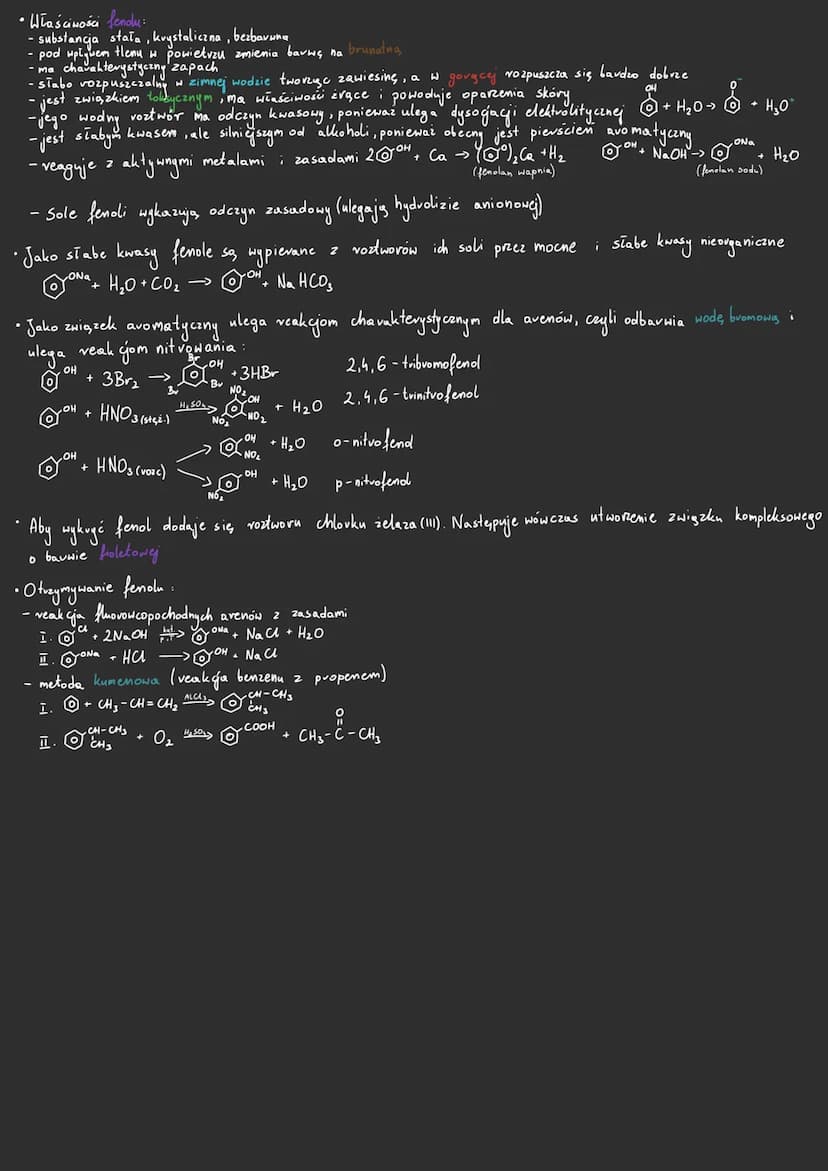 • Właściwości fenolu:
- substancja stała, krystaliczna, bezbarwna
- pod wpływem tlenu w powietrzu zmienia barwę na brunatną
- ma charakterystyczny zapach
- słabo rozpuszczalny w zimnej wodzie tworząc zawiesinę, a w gorącej rozpuszcza się bardzo dobrze
- jest związkiem toksycznym, ma właściwość żrące i powoduje oparzenia skóry
- jego wodny roztwór ma odczyn kwasowy, ponieważ ulega dysocjacji elektrolitycznej OH + H₂O → O⁻ + H₃O⁺
- jest słabym kwasem, ale silniejszym od alkoholi, ponieważ obecny jest pierścień aromatyczny
- reaguje z aktywnymi metalami i zasadami 2 OH + Ca → ( O)₂Ca + H₂ OH + NaOH → ONa + H₂O
(fenolan wapnia) (fenolan sodu)
- Sole fenoli wykazują odczyn zasadowy (ulegają hydrolizie anionowej)
• Jako słabe kwasy fenole są wypierane z roztworów ich soli przez mocne i słabe kwasy nieorganiczne
ONa + H₂O + CO₂ → OH + NaHCO₃
• Jako związek aromatyczny ulega reakcjom charakterystycznym dla arenów, czyli odbarwia wodę bromową i
ulega reakcjom nitrowania:
OH + 3Br₂ → Br OH Br Br + 3HBr 2,4,6-tribromofenol
OH + HNO₃ (stęż.) H₂SO₄→ NO₂ OH NO₂ NO₂ + H₂O 2,4,6-trinitrofenol
OH NO₂ + H₂O o-nitrofenol
OH + HNO₃ (rozc)
OH NO₂ + H₂O p-nitrofenol
• Aby wykryć fenol dodaje się roztworu chlorku żelaza (III). Następuje wówczas utworzenie związku kompleksowego
o barwie fioletowej
• Otrzymywanie fenolu:
- reakcja fluorowcopochodnych arenów z zasadami
I. Cl + 2NaOH kat. p,T→ ONa + NaCl + H₂O
II. ONa + HCl → OH + NaCl
- metoda kumenowa (reakcja benzenu z propenem)
I. + CH₃-CH=CH₂ AlCl₃→ CH-CH₃ CH₃
II. CH-CH₃ CH₃ + O₂ H₂SO₄→ COOH + CH₃-C-CH₃ O